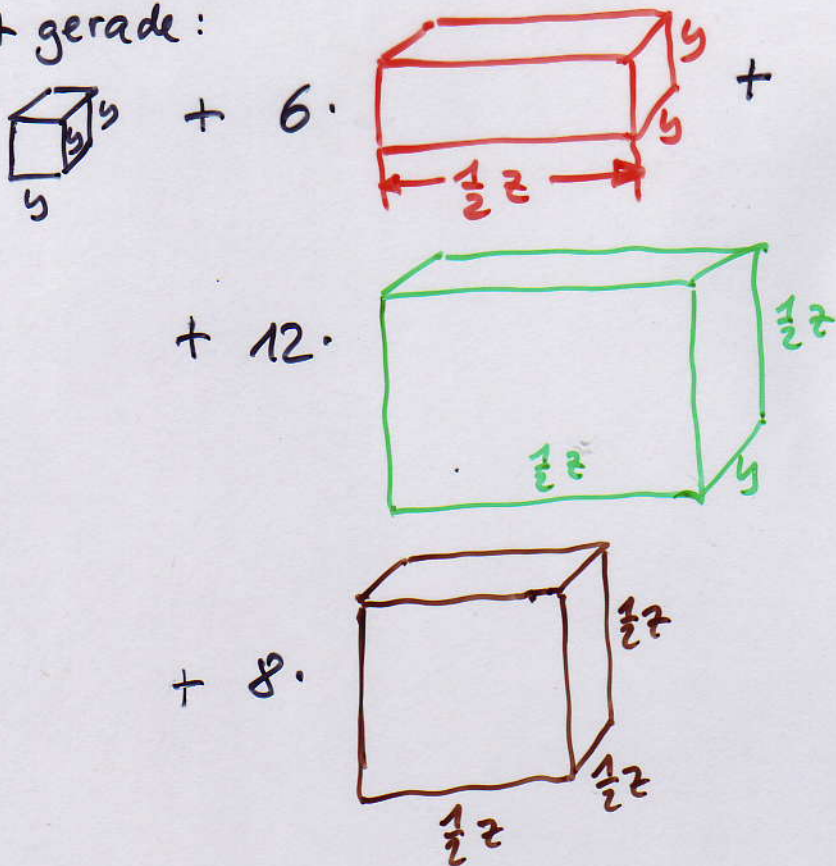 gerade:
+ 6· y +
y y y
y
½ z
+ 12· ½ z
½ z y
+ 8· ½ z
½ z
½ z